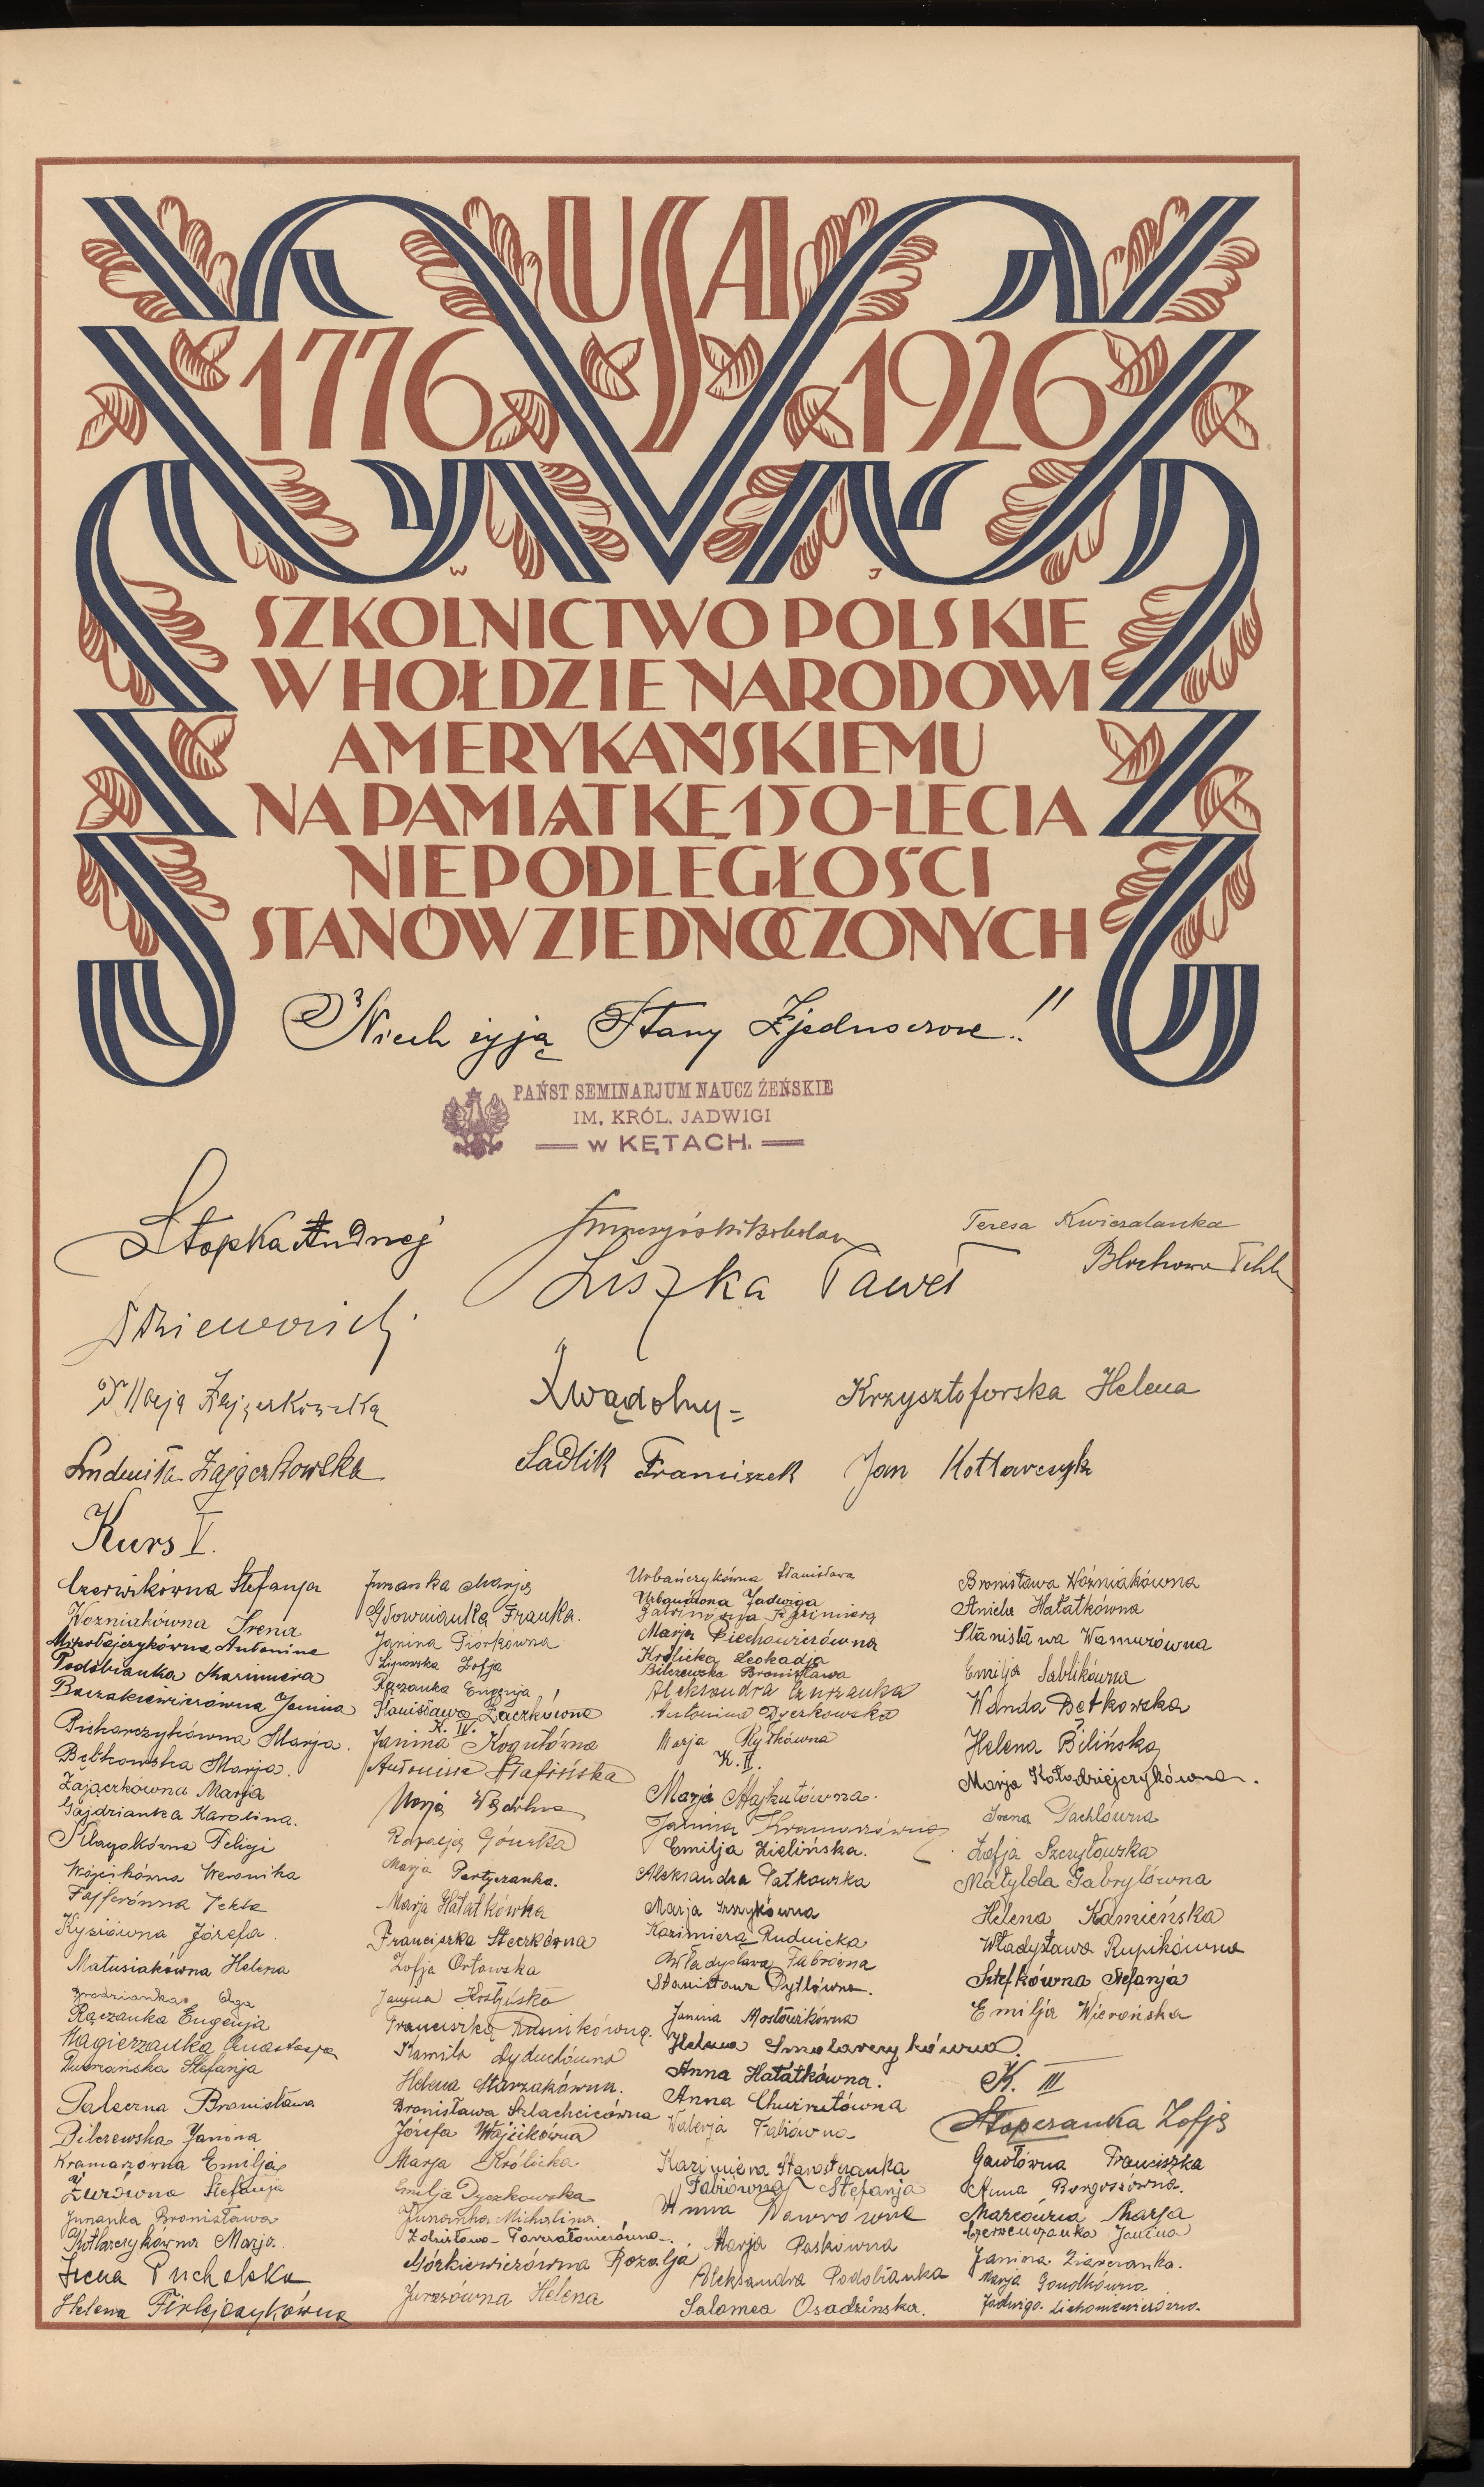 USA
1776 1926
W J
SZKOLNICTWO POLSKIE
W HOŁDZIE NARODOWI
AMERYKAŃSKIEMU
NA PAMIĄTKĘ 150-LECIA
NIEPODLEGŁOŚCI
STANÓW ZJEDNOCZONYCH
"Niech żyją Stany Zjednoczone!"
PAŃST. SEMINARJUM NAUCZ ŻEŃSKIE
IM. KRÓL. JADWIGI
w KĘTACH.
Stopka Andrzej
Teresa Kwiczalanka
Liszka Paweł
Krzysztoforska Helena
Ludmiła Zajączkowska
Sadlik Franciszek
Jan Kotlarczyk
Kurs V.
Czerwikówna Stefanja
Woźniakówna Irena
Mikołajczykówna Antonina
Podobianka Kazimiera
Baczakiewiczówna Janina
Picharczykówna Marja.
Bętkowska Marja.
Zajączkówna Marja
Gajdzianka Karolina.
Wójcikówna Weronika
Kysiówna Józefa.
Matusiakówna Helena
Olga
Rączanka Eugenja
Magierzanka Anastazja
Stefanja
Paleczna Bronisława
Bilczewska Janina
Kramarzówna Emilja
Żurówna Stefanja
Junanka Bronisława
Kotlarczykówna Marja.
Irena Puchalska
Helena Firlejczykówna
Junanka Marja
Głownianka Franka.
Janina Piórkówna
Lipowska Zofja
Rączanka Eugenja
Stanisława Żaczkówna
K. IV.
Janina Kogutówna
Antonina
Marja
Rozalja Górska
Marja Partyczanka.
Marja Hałatkówna
Franciszka Steczkówna
Zofja Orłowska
Janina
Franciszka
Kamila Dyduchówna
Helena Starzakówna.
Bronisława Szlachcicówna
Józefa Wójcikówna
Marja Królicka
Emilja Dyczkowska
Junanka Michalina
Zdzisława
Górkiewiczówna Rozalja
Jurzówna Helena
Urbańczykówna Stanisława
Jadwiga
Kazimiera
Marja Piechowiczówna
Królicka Leokadja
Bilczewska Bronisława
Aleksandra
Antonina Dyczkowska
Marja Kyłkówna
K. II.
Marja Hajkutówna.
Janina Kramarzówna
Emilja Zielińska.
Aleksandra Patkowska
Marja
Kazimiera Rudnicka
Władysława Fabrówna
Stanisława Dytlówna.
Janina
Helena Smolarczykówna.
Anna Hałatkówna.
Anna
Walerja
Kazimiera
Fabiówna Stefanja
Anna Nawrówna
Marja Paskówna
Aleksandra Podobianka
Salomea Osadzińska.
Bronisława Woźniakówna
Aniela Hałatkówna
Stanisława
Emilja Sablikówna
Wanda Bętkowska
Helena Bilińska
Marja Kołodziejczykówna.
Irena Pachlówna
Zofja Szczytowska
Matylda Gabrylówna
Helena Kamieńska
Władysława Rupikówna
Stefkówna Stefanja
Emilja Wierońska
K. III
Stopczanka Zofja
Gawłówna Franciszka
Anna
Marja
Janina
Janina
Marja
Jadwiga